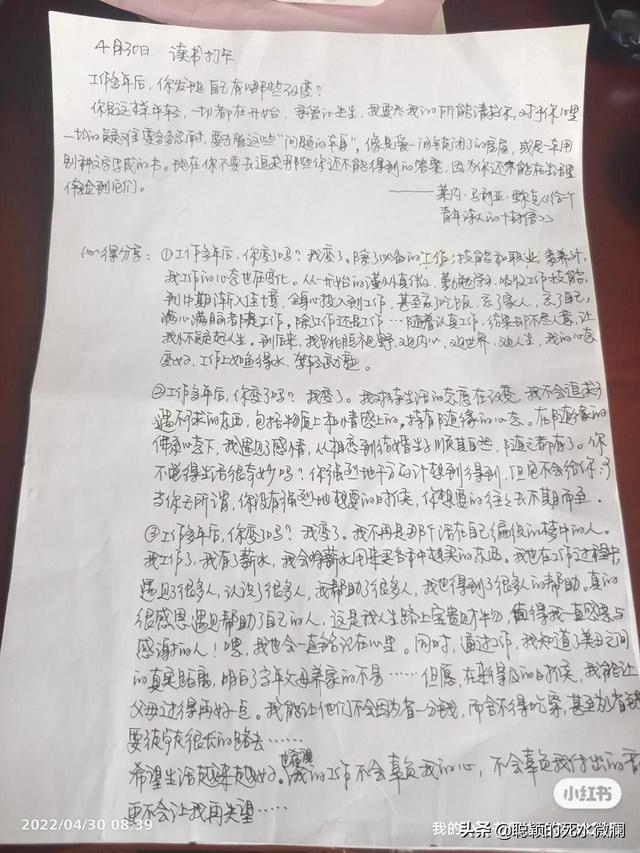 4月30日 读书打卡
工作多年后，你发现自己有哪些改变？
你是这样年轻，一切都在开始，亲爱的先生，我要尽我的所能请求你，对于你心里
一切的疑难要多多忍耐，要去爱这些“问题的本身”，像是爱一间锁闭了的房屋，或是一本用
别种文字写成的书。现在你不要去追求那些你还不能得到的答案，因为你还不能在生活里
体验到它们。
——莱内·马利亚·里尔克《给一个
青年诗人的十封信》
心得分享：①工作多年后，你变了吗？我变了。除了必备的工作技能和职业素养外，
我工作的心态也在变化。从一开始的谨小认真做，勤勉学习，吸收工作技能，
到中期渐入佳境，全身心投入到工作，甚至忘了吃饭，忘了家人，忘了自己，
满心满脑都是工作。除了工作还是工作…随着认真工作，结果却不尽人意，让
我怀疑起人生。到后来，我观内心，观世界，观人生，我的心态
变好，工作上如鱼得水，
②工作多年后，你变了吗？我变了。我对待生活的态度在改变。我不会追求
遇不求的东西，包括物质上和情感上的。持有随缘的心态。在随缘的
佛系心态下，我遇见感情，从相恋到结婚生子顺其自然，随之都有了。你
不觉得生活很奇妙吗？你强烈地千方百计想到得到，但是不会给你，
当你无所谓，你没有强烈地想要的时候，你想要的往往会不期而至。
③工作多年后，你变了吗？我变了。我不再是那个活在自己编织的梦中的人。
我工作了，我有了薪水，我会将薪水用来买各种想买的东西。我也在工作过程中
遇见了很多人，认识了很多人，我帮助了很多人，我也得到了很多人的帮助。真的
很感恩遇见帮助了自己的人，这是我人生路上宝贵财物，值得我一直感恩与
感谢的人！嗯，我也会一直铭记在心里。同时，通过工作，我知道了
的真实距离，明白了当年父母养家的不易……但愿，在来得及的时候，我能让
父母过得再好点。我能让他们不会因为省一分钱，而舍不得吃穿，甚至为省钱
要徒步走很长的路去……
希望生活越来越好。也希望我的工作不会辜负我的心，不会辜负我付出的
更不会让我再失望……
2022/04/30 08:39
小红书
我的
头条 @聪颖的死水微澜